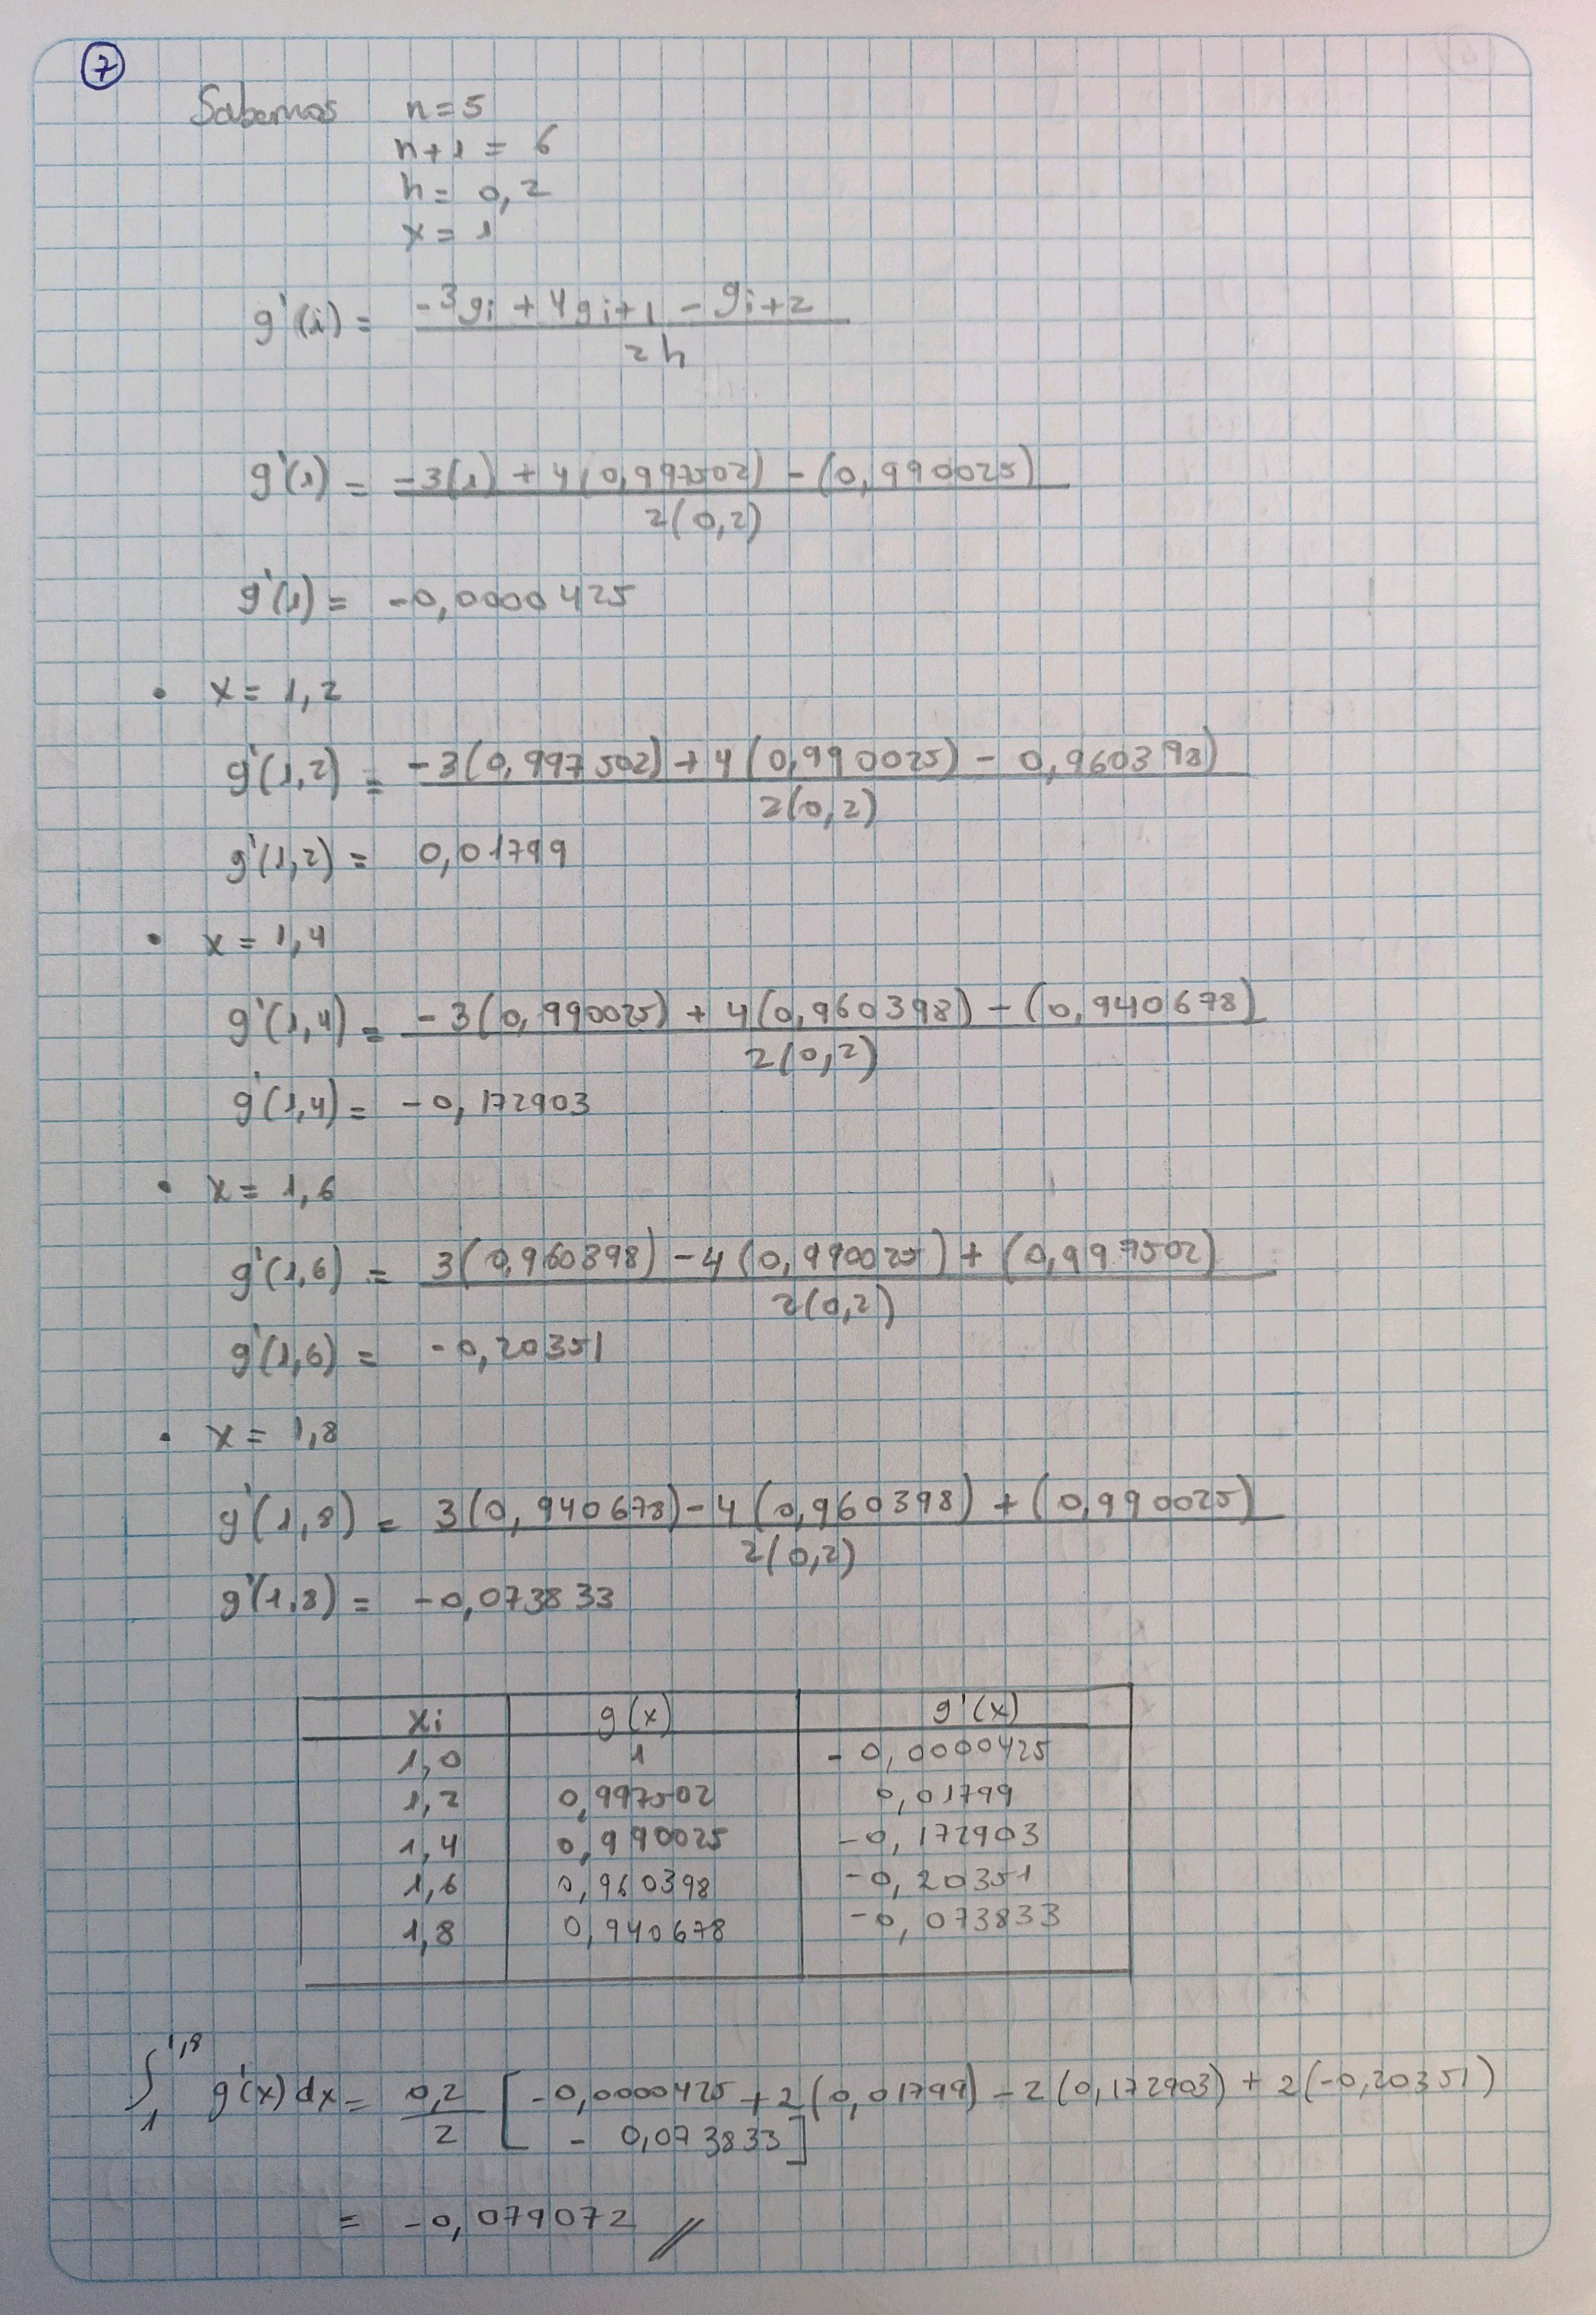 7
Sabemos n=5
n+1 = 6
h= 0,2
x= 1
g'(i) = (-3gi + 4gi+1 - gi+2) / 2h
g'(1) = (-3(1) + 4(0,997502) - (0,990025)) / 2(0,2)
g'(1) = -0,0000425
• x= 1,2
g'(1,2) = (-3(0,997502) + 4(0,990025) - 0,960398) / 2(0,2)
g'(1,2) = 0,01799
• x = 1,4
g'(1,4) = (-3(0,990025) + 4(0,960398) - (0,940678)) / 2(0,2)
g'(1,4) = -0,172903
• x = 1,6
g'(1,6) = (3(0,960398) - 4(0,990025) + (0,997502)) / 2(0,2)
g'(1,6) = -0,20351
• x = 1,8
g'(1,8) = (3(0,940678) - 4(0,960398) + (0,990025)) / 2(0,2)
g'(1,8) = -0,073833
xi g(x) g'(x)
1,0 1 -0,0000425
1,2 0,997502 0,01799
1,4 0,990025 -0,172903
1,6 0,960398 -0,20351
1,8 0,940678 -0,073833
∫₁^1,8 g'(x)dx = 0,2/2 [-0,0000425 + 2(0,01799) - 2(0,172903) + 2(-0,20351)
- 0,073833]
= -0,079072 //